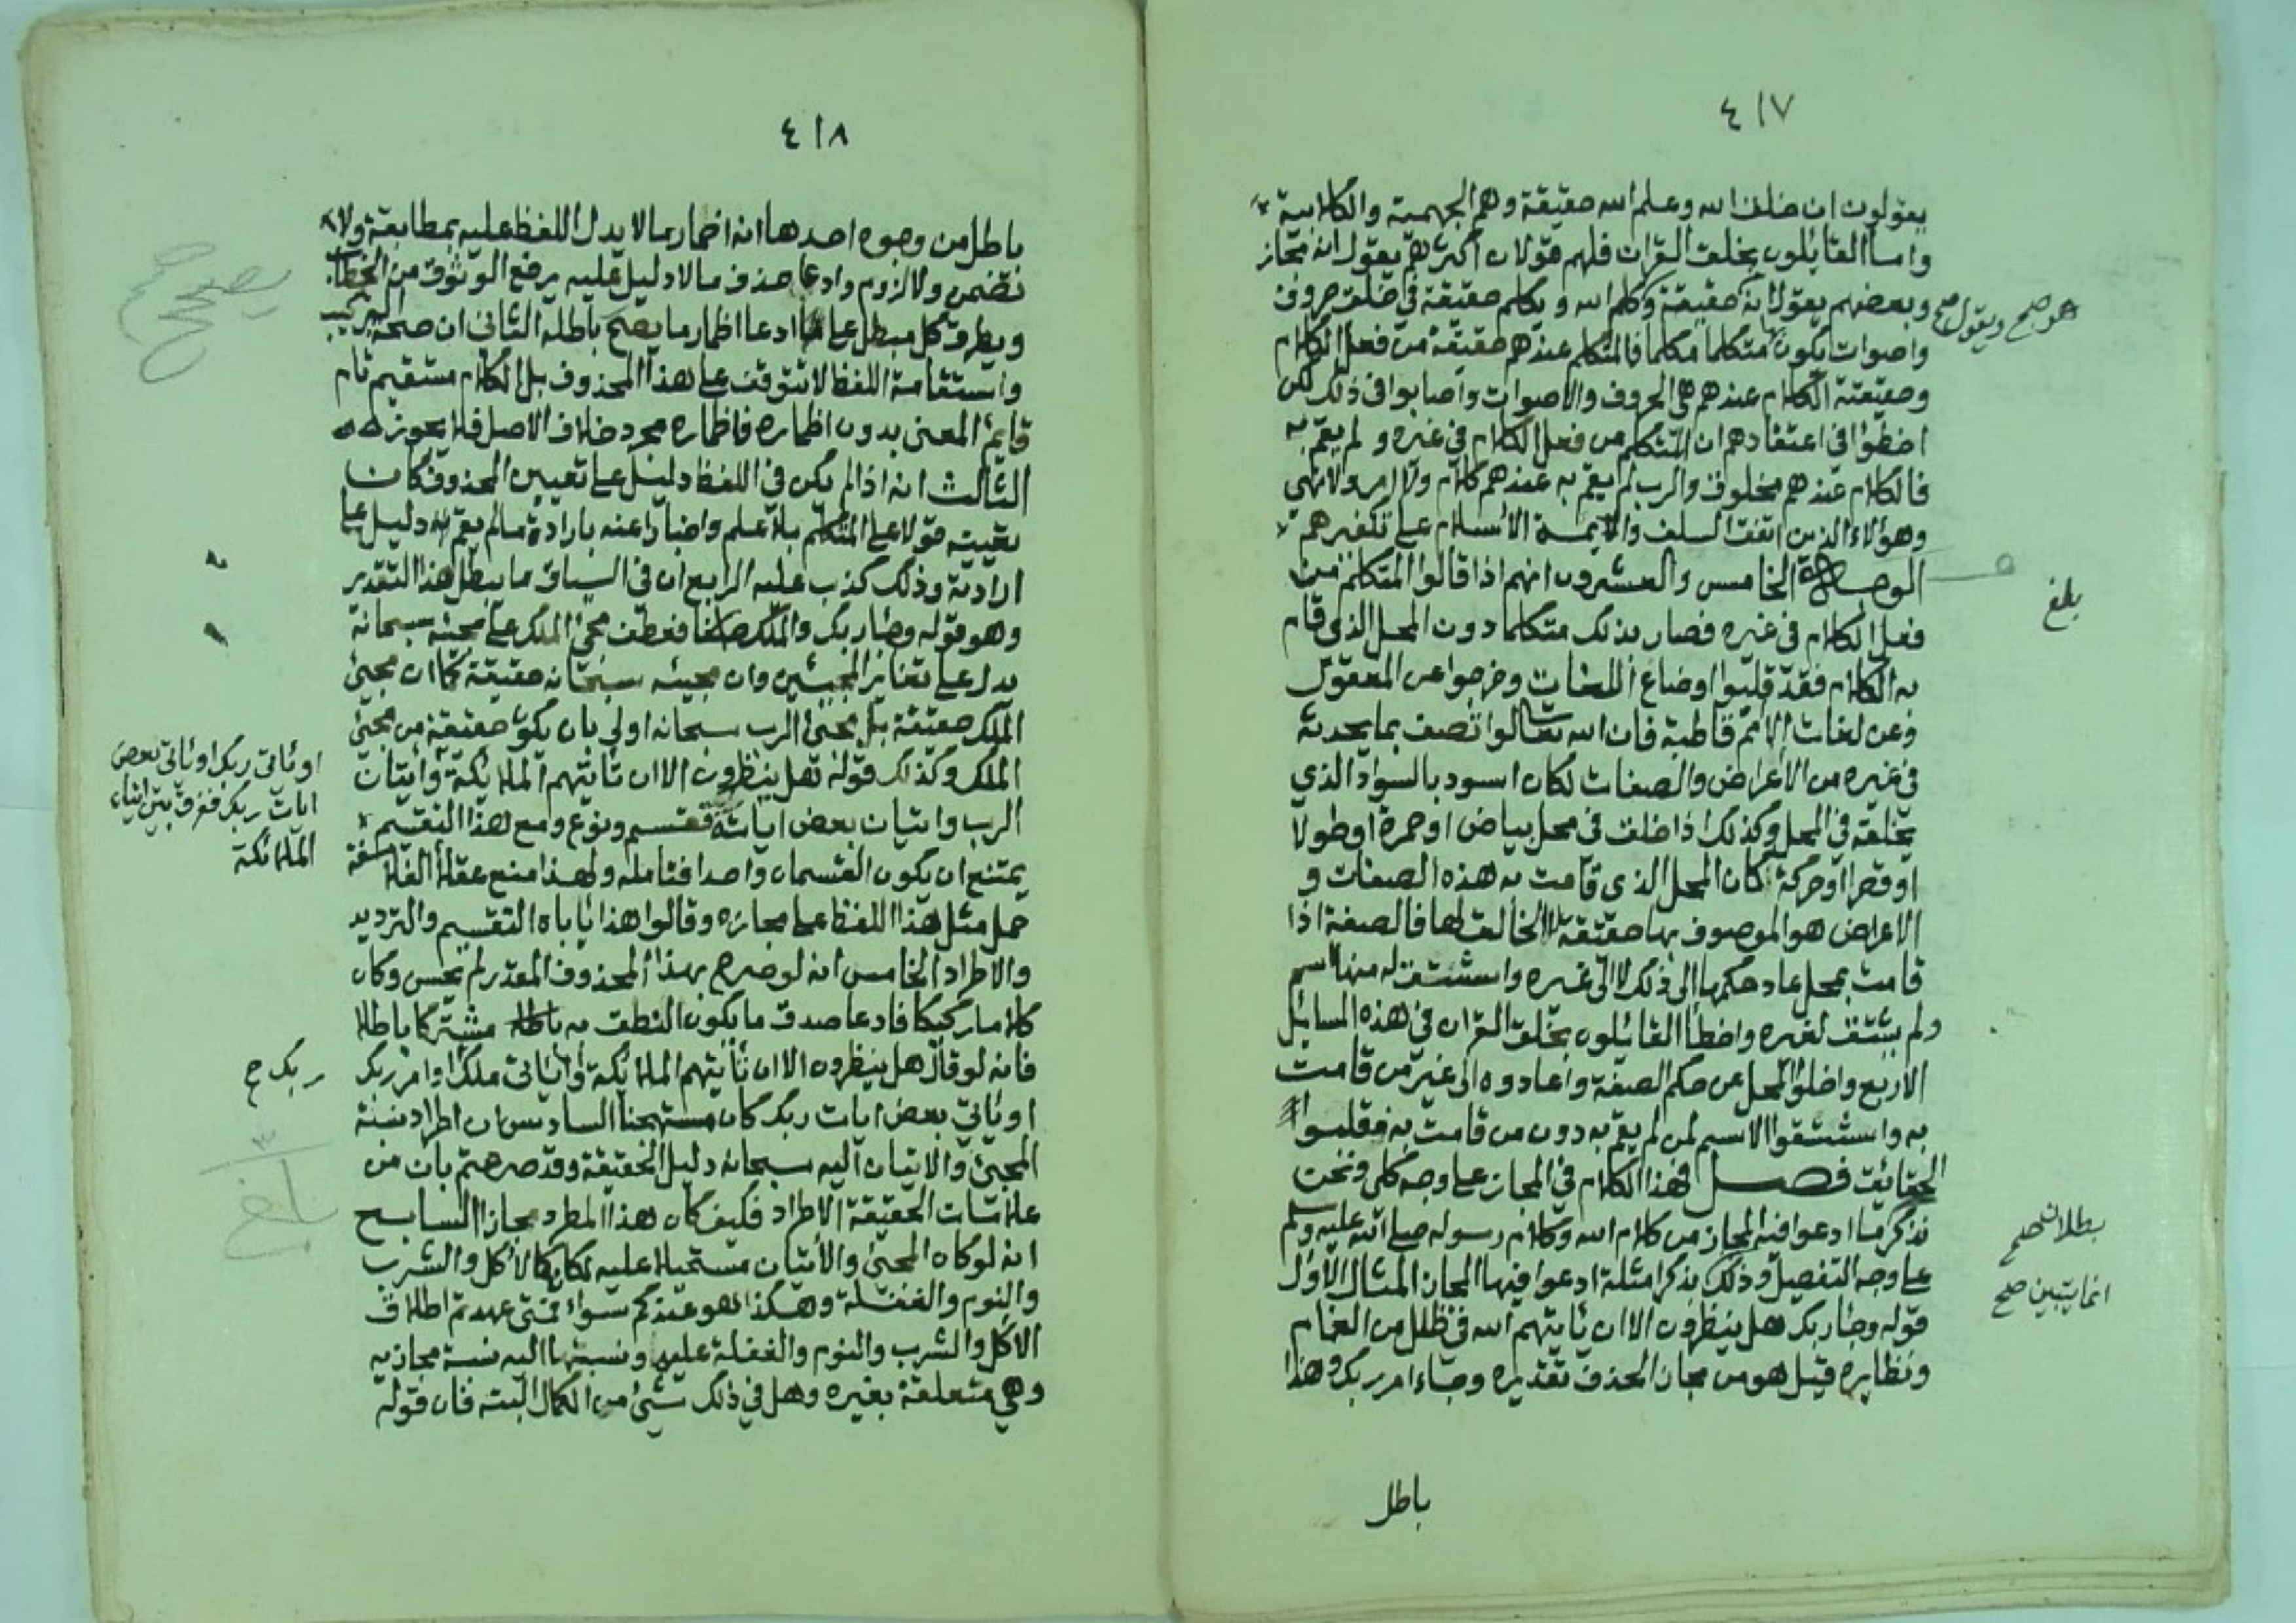 ٤١٧
يقولون ان خلق الله وعلم الله حقيقة وهم الجهمية والكلابية
واما القائلون بخلق القرآن فلهم قولان اكثرهم يقول انه مجاز
وبعضهم يقول انه حقيقة وكلم الله ويكلم حقيقة في خلق حروف
هو صح ويقول صح
واصوات يكون بها متكلما مكلما فالمتكلم عندهم حقيقة من فعل الكلام
وحقيقة الكلام عندهم هي الحروف والاصوات واصابوا في ذلك لكن
اخطؤا في اعتقادهم ان المتكلم من فعل الكلام في غيره ولم يقم به
فالكلام عندهم مخلوق والرب لم يقم به عندهم كلام ولا امر ولا نهي
وهؤلاء الذين اتفق السلف والايمة الاسلام على تكفيرهم
الوجه الخامس والعشرون انهم اذا قالوا المتكلم من
بلغ
فعل الكلام في غيره فصار بذلك متكلما دون المحل الذي قام
به الكلام فقد قلبوا اوضاع اللغات وخرجوا عن المعقول
وعن لغات الامم قاطبة فان الله تعالى لو اتصف بما يحدثه
في غيره من الاعراض والصفات لكان اسود بالسواد الذي
يخلقه في المحل وكذلك اذا خلق في محل بياض او حمرة او طولا
او قصرا او حركة كان المحل الذي قامت به هذه الصفات و
الاعراض هو الموصوف بها حقيقة لا الخالق لها فالصفة اذا
قامت بمحل عاد حكمها الى ذلك لا الى غيره واستشتق له منها اسم
ولم يشتق لغيره واخطأ القائلون بخلق القران في هذه المسائل
الاربع واخلوا المحل عن حكم الصفة واعادوه الى غير من قامت
به واستشقوا الاسم لمن لم يقم به دون من قامت به فقلبوا
الحقائق فصل فهذا الكلام في المجاز على وجه كلي ونحن
نذكر ما ادعوا فيه المجاز من كلام الله وكلام رسوله صلى الله عليه وسلم
بطلانه صح
على وجه التفصيل وذلك بذكر امثلة ادعوا فيها المجاز المثال الاول
انما يتبين صح
قوله وجاء ربك هل ينظرون الا ان ياتيهم الله في ظلل من الغمام
ونظايره قيل هو من مجاز الحذف تقديره وجاء امر ربك وهذا
باطل
٤١٨
باطل من وجوه احدها انه اضمار بما لا يدل اللفظ عليه بمطابقة ولا
تضمن ولا لزوم وادعا حذف ما لا دليل عليه يرفع الوثوق من الخطاب
يصحح
ويطرق كل مبطل على ادعا اظمار ما يصحح باطله الثاني ان صحة التركيب
واستقامة اللفظ لا تتوقف على هذا المحذوف بل الكلام مستقيم تام
قايم المعنى بدون اظماره فاظماره مجرد خلاف الاصل فلا يجوز
الثالث انه اذا لم يكن في اللفظ دليل على تعيين المحذوف كان
تعيينه قولا على المتكلم بلا علم واخبارا عنه بارادة ما لم يقم به دليل على
ارادته وذلك كذب عليه الرابع ان في السياق ما يبطل هذا التقدير
وهو قوله وجاء ربك والملك صفا فعطف مجئ الملك على مجيئه سبحانه
يدل على تغاير المجيئين وان مجيئه سبحانه حقيقة كما ان مجئ
الملك حقيقة بل مجئ الرب سبحانه اولى بان يكون حقيقة من مجئ
الملك وكذلك قوله هل ينظرون الا ان تاتيهم الملايكة واتيان
او ياتي ربك او ياتي بعض
ايات ربك ففرق بين اتيان
الملائكة
الرب واتيان بعض اياته فقسم ونوع ومع هذا التقسيم
يمتنع ان يكون القسمان واحدا فتامله ولهذا منع عقلا الفلاسفة
حمل مثل هذا اللفظ على مجازه وقالوا هذا ياباه التقسيم والترديد
والاطراد الخامس انه لو صرح بهذا المحذوف المقدر لم يحسن وكان
كلاما ركيكا فادعا صدق ما يكون النطق به مشتركا باطلا
فانه لو قال هل ينظرون الا ان تاتيهم الملايكة او ياتي ملك او امر ربك
ربك ح
او ياتي بعض ايات ربك كان مستهجنا السادس ان اطراد نسبة
المجئ والاتيان اليه سبحانه دليل الحقيقة وقد صرحتم بان من
بلغ
علامات الحقيقة الاطراد فكيف كان هذا المطرد مجازا السابع
انه لو كان المجئ والاتيان مستحيلا عليه لكان كالاكل والشرب
والنوم والغفلة وهكذا هو عندكم سواء فمتى عهدتم اطلاق
الاكل والشرب والنوم والغفلة عليه ونسبتها اليه نسبة مجازيه
وهي متعلقة بغيره وهل في ذلك شيئ من الكمال البته فان قوله